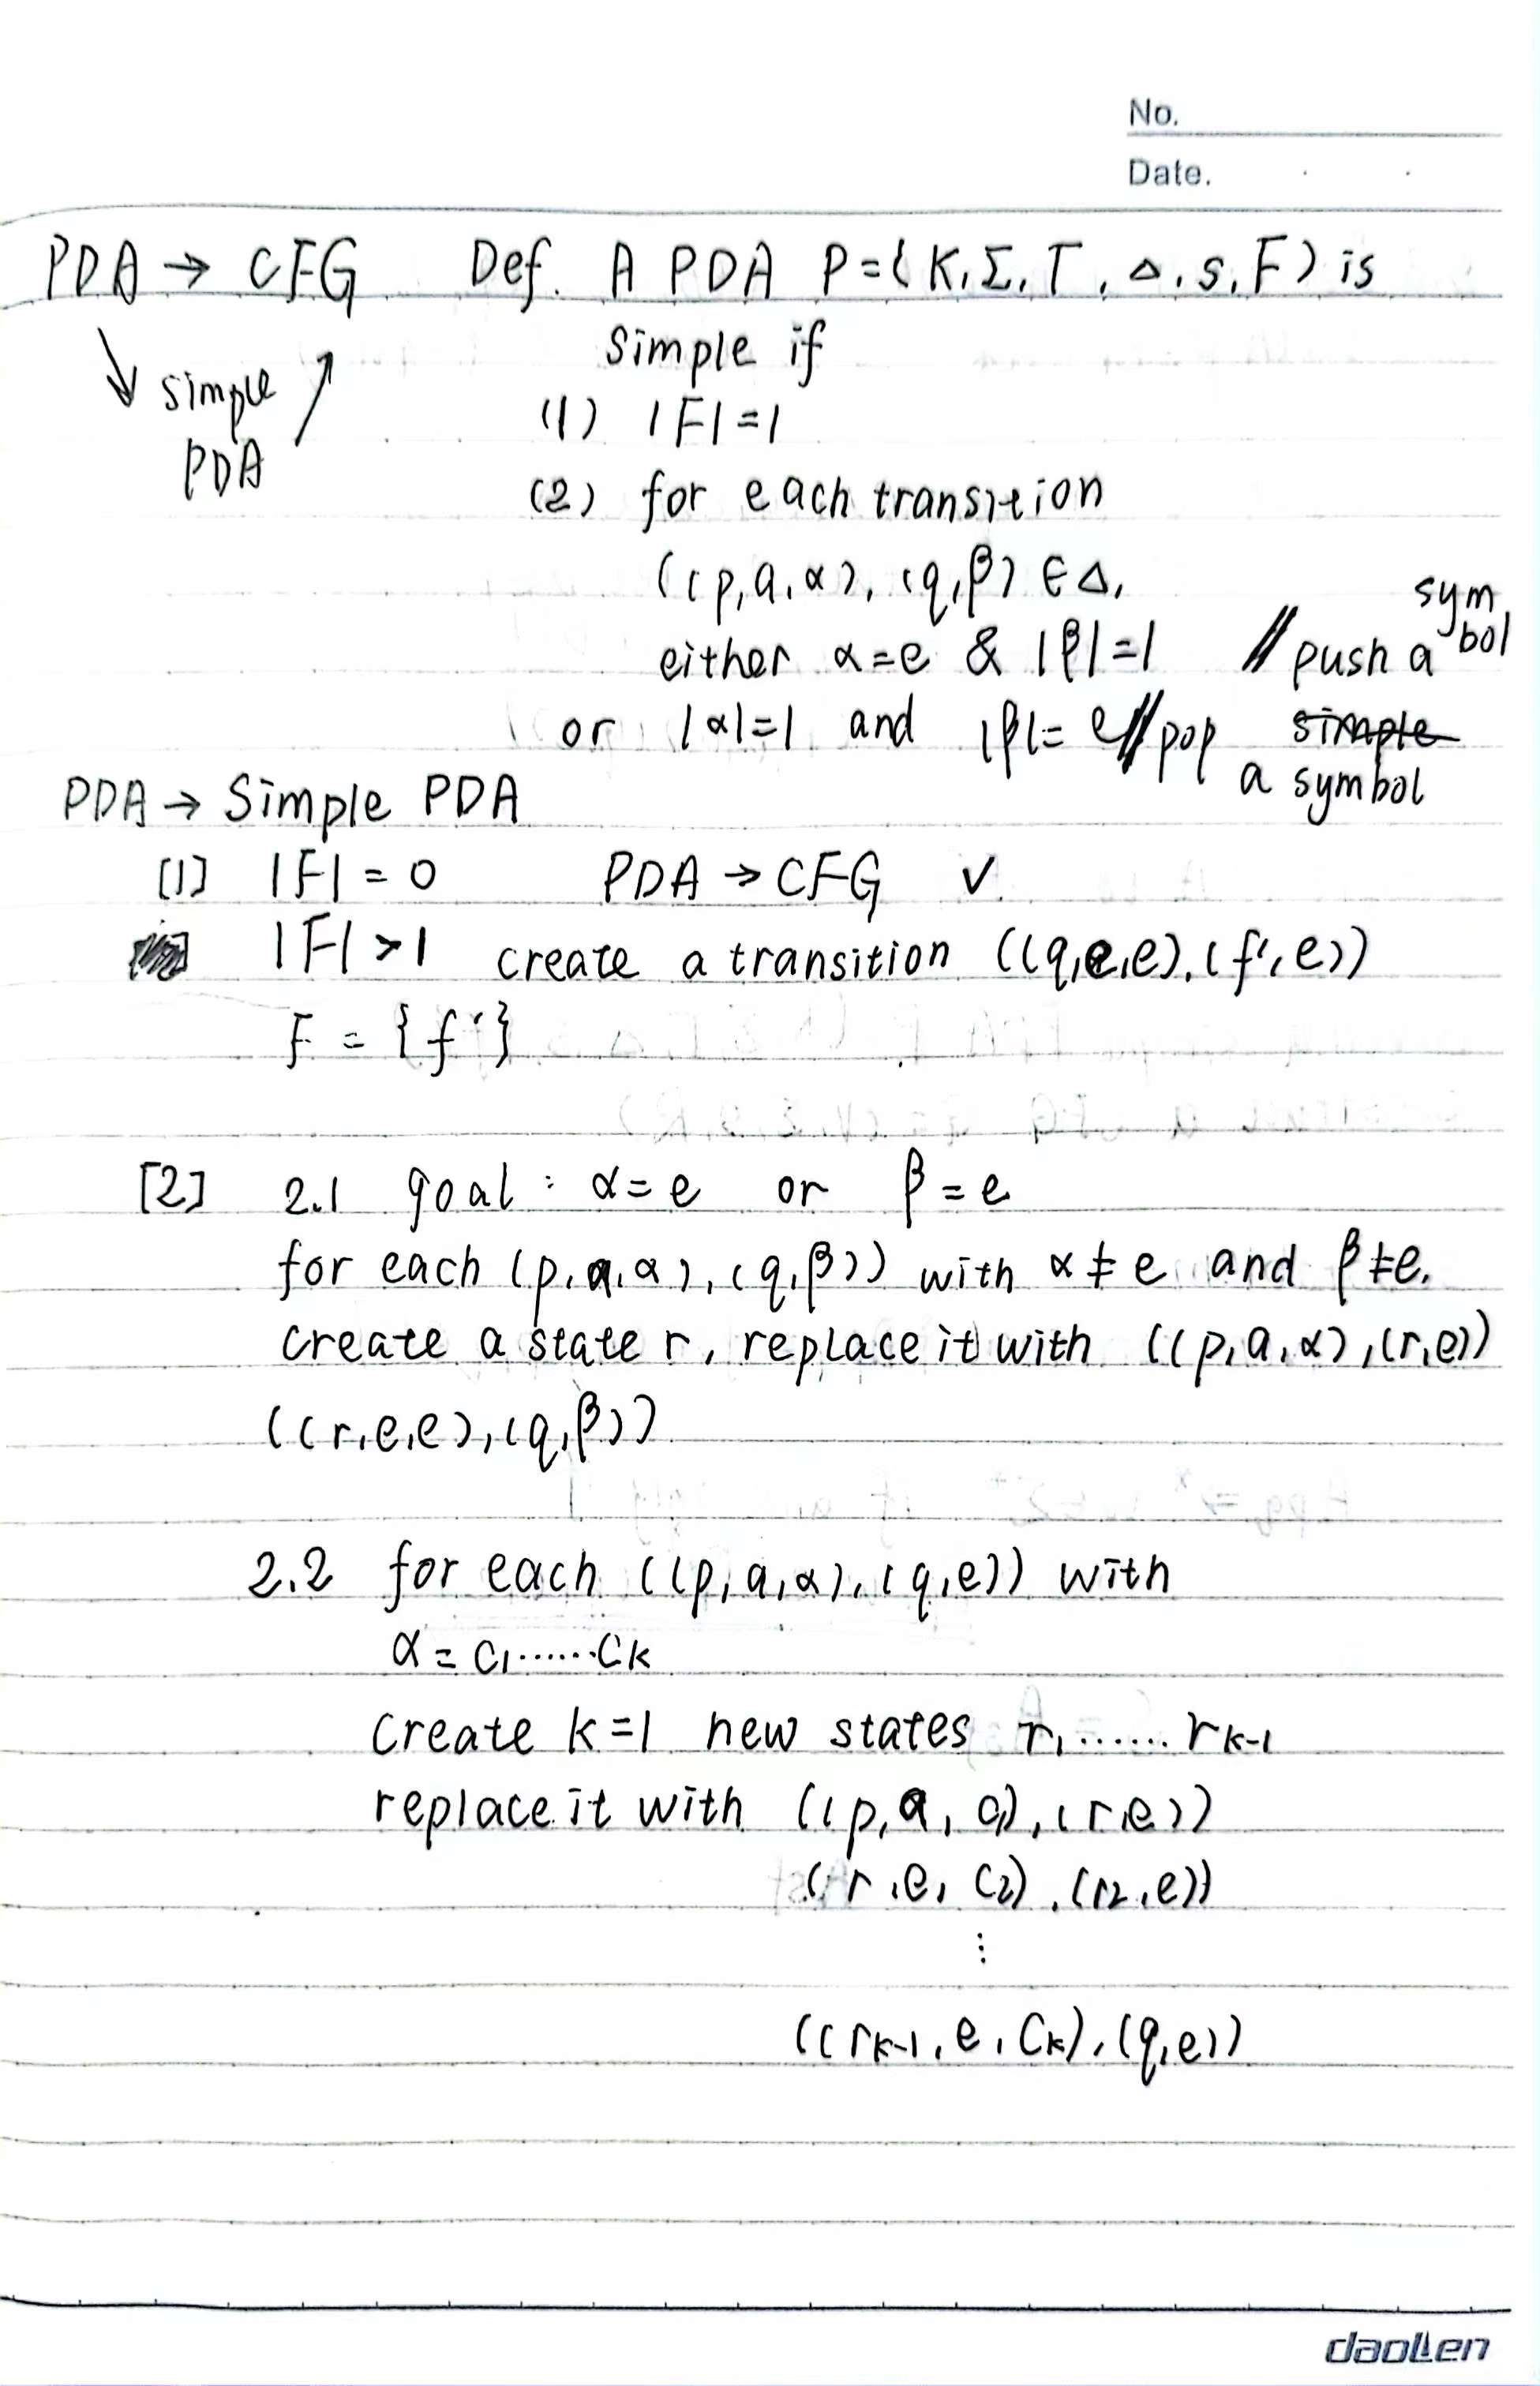 No.
Date.
PDA → CFG Def. A PDA P=(K,Σ,Γ,Δ,s,F) is
simple if
↓ simple ↗
PDA
(1) |F|=1
(2) for each transition
((p,a,α),(q,β) ∈Δ,
either α=e & |β|=1 // push a symbol
or |α|=1 and |β|= e // pop simple
a symbol
PDA → Simple PDA
[1] |F| = 0 PDA → CFG ✓
|F| > 1 create a transition ((q,e,e),(f',e))
F = {f'}
[2] 2.1 goal : α=e or β=e
for each (p,a,α),(q,β)) with α≠e and β≠e.
create a state r, replace it with ((p,a,α),(r,e))
((r,e,e),(q,β))
2.2 for each ((p,a,α),(q,e)) with
α = c₁······cₖ
create k=1 new states r₁······rₖ₋₁
replace it with ((p,a,c₁),(r,e))
(r,e,c₂),(r₂,e))
⋮
((rₖ₋₁,e,cₖ),(q,e))
daollen